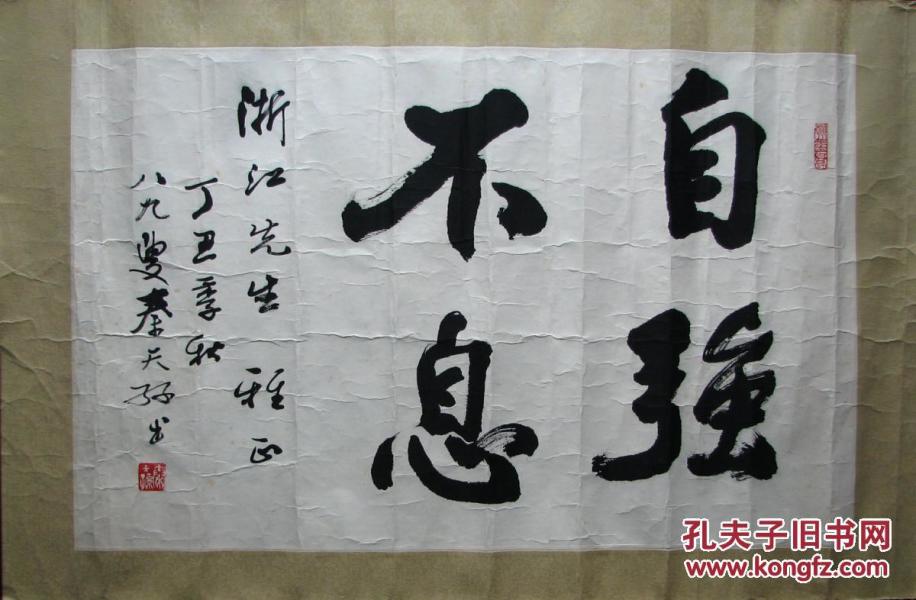 自強
不息
浙江先生 雅正
丁丑季秋
八九叟秦天孫书
孔夫子旧书网
www.kongfz.com